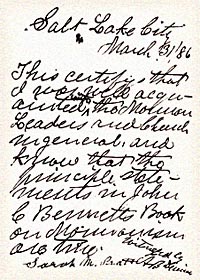 Salt Lake City
March 31/86
This certify's that
I was well acqu-
ainted, the Mormon
Leaders and church
in general. and
know that the
principle state-
ments in John
C Bennetts Book
on Mormonism
are true.
Sarah M. Pratt